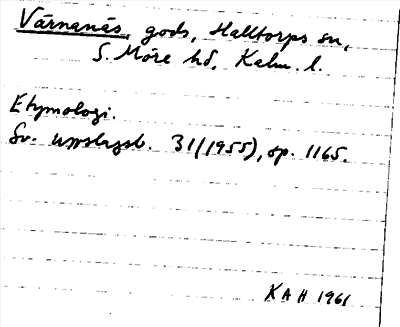 Värnanäs, gods, Halltorps sn,
S. Möre hd, Kalm. l.
Etymologi.
Sv. uppslagsb. 31(1955), sp. 1165.
KAH 1961